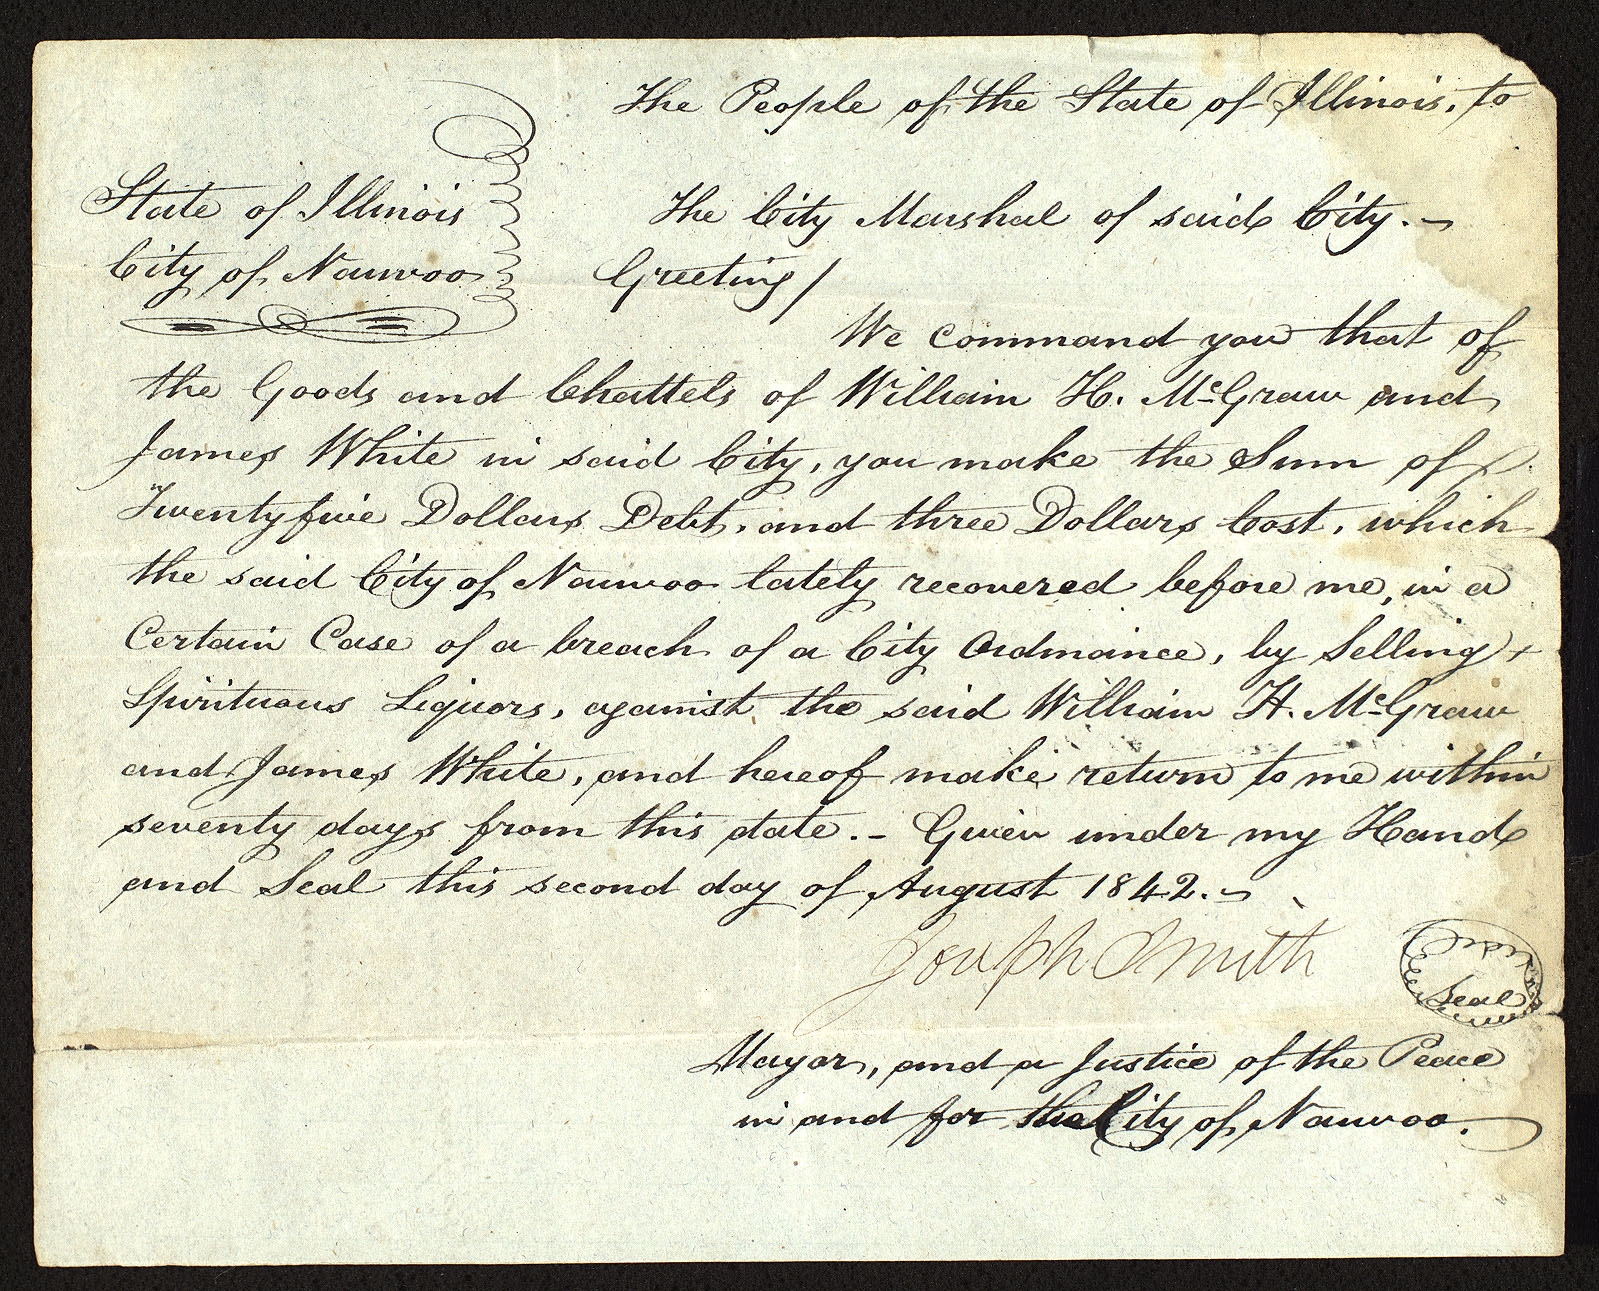 The People of the State of Illinois, to
State of Illinois
City of Nauvoo
The City Marshal of said City. ~
Greeting/
We command you that of
the Goods and Chattels of William H. McGraw and
James White in said City, you make the Sum of
Twenty five Dollars Debt, and three Dollars Cost, which
the said City of Nauvoo lately recovered before me, in a
Certain Case of a breach of a City Ordinance, by Selling
Spirituous Liquors, against the said William H. McGraw
and James White, and hereof make return to me within
seventy days from this date. - Given under my Hand
and Seal this second day of August 1842. ~
Joseph Smith
Seal
Mayor, and a Justice of the Peace
in and for the City of Nauvoo.